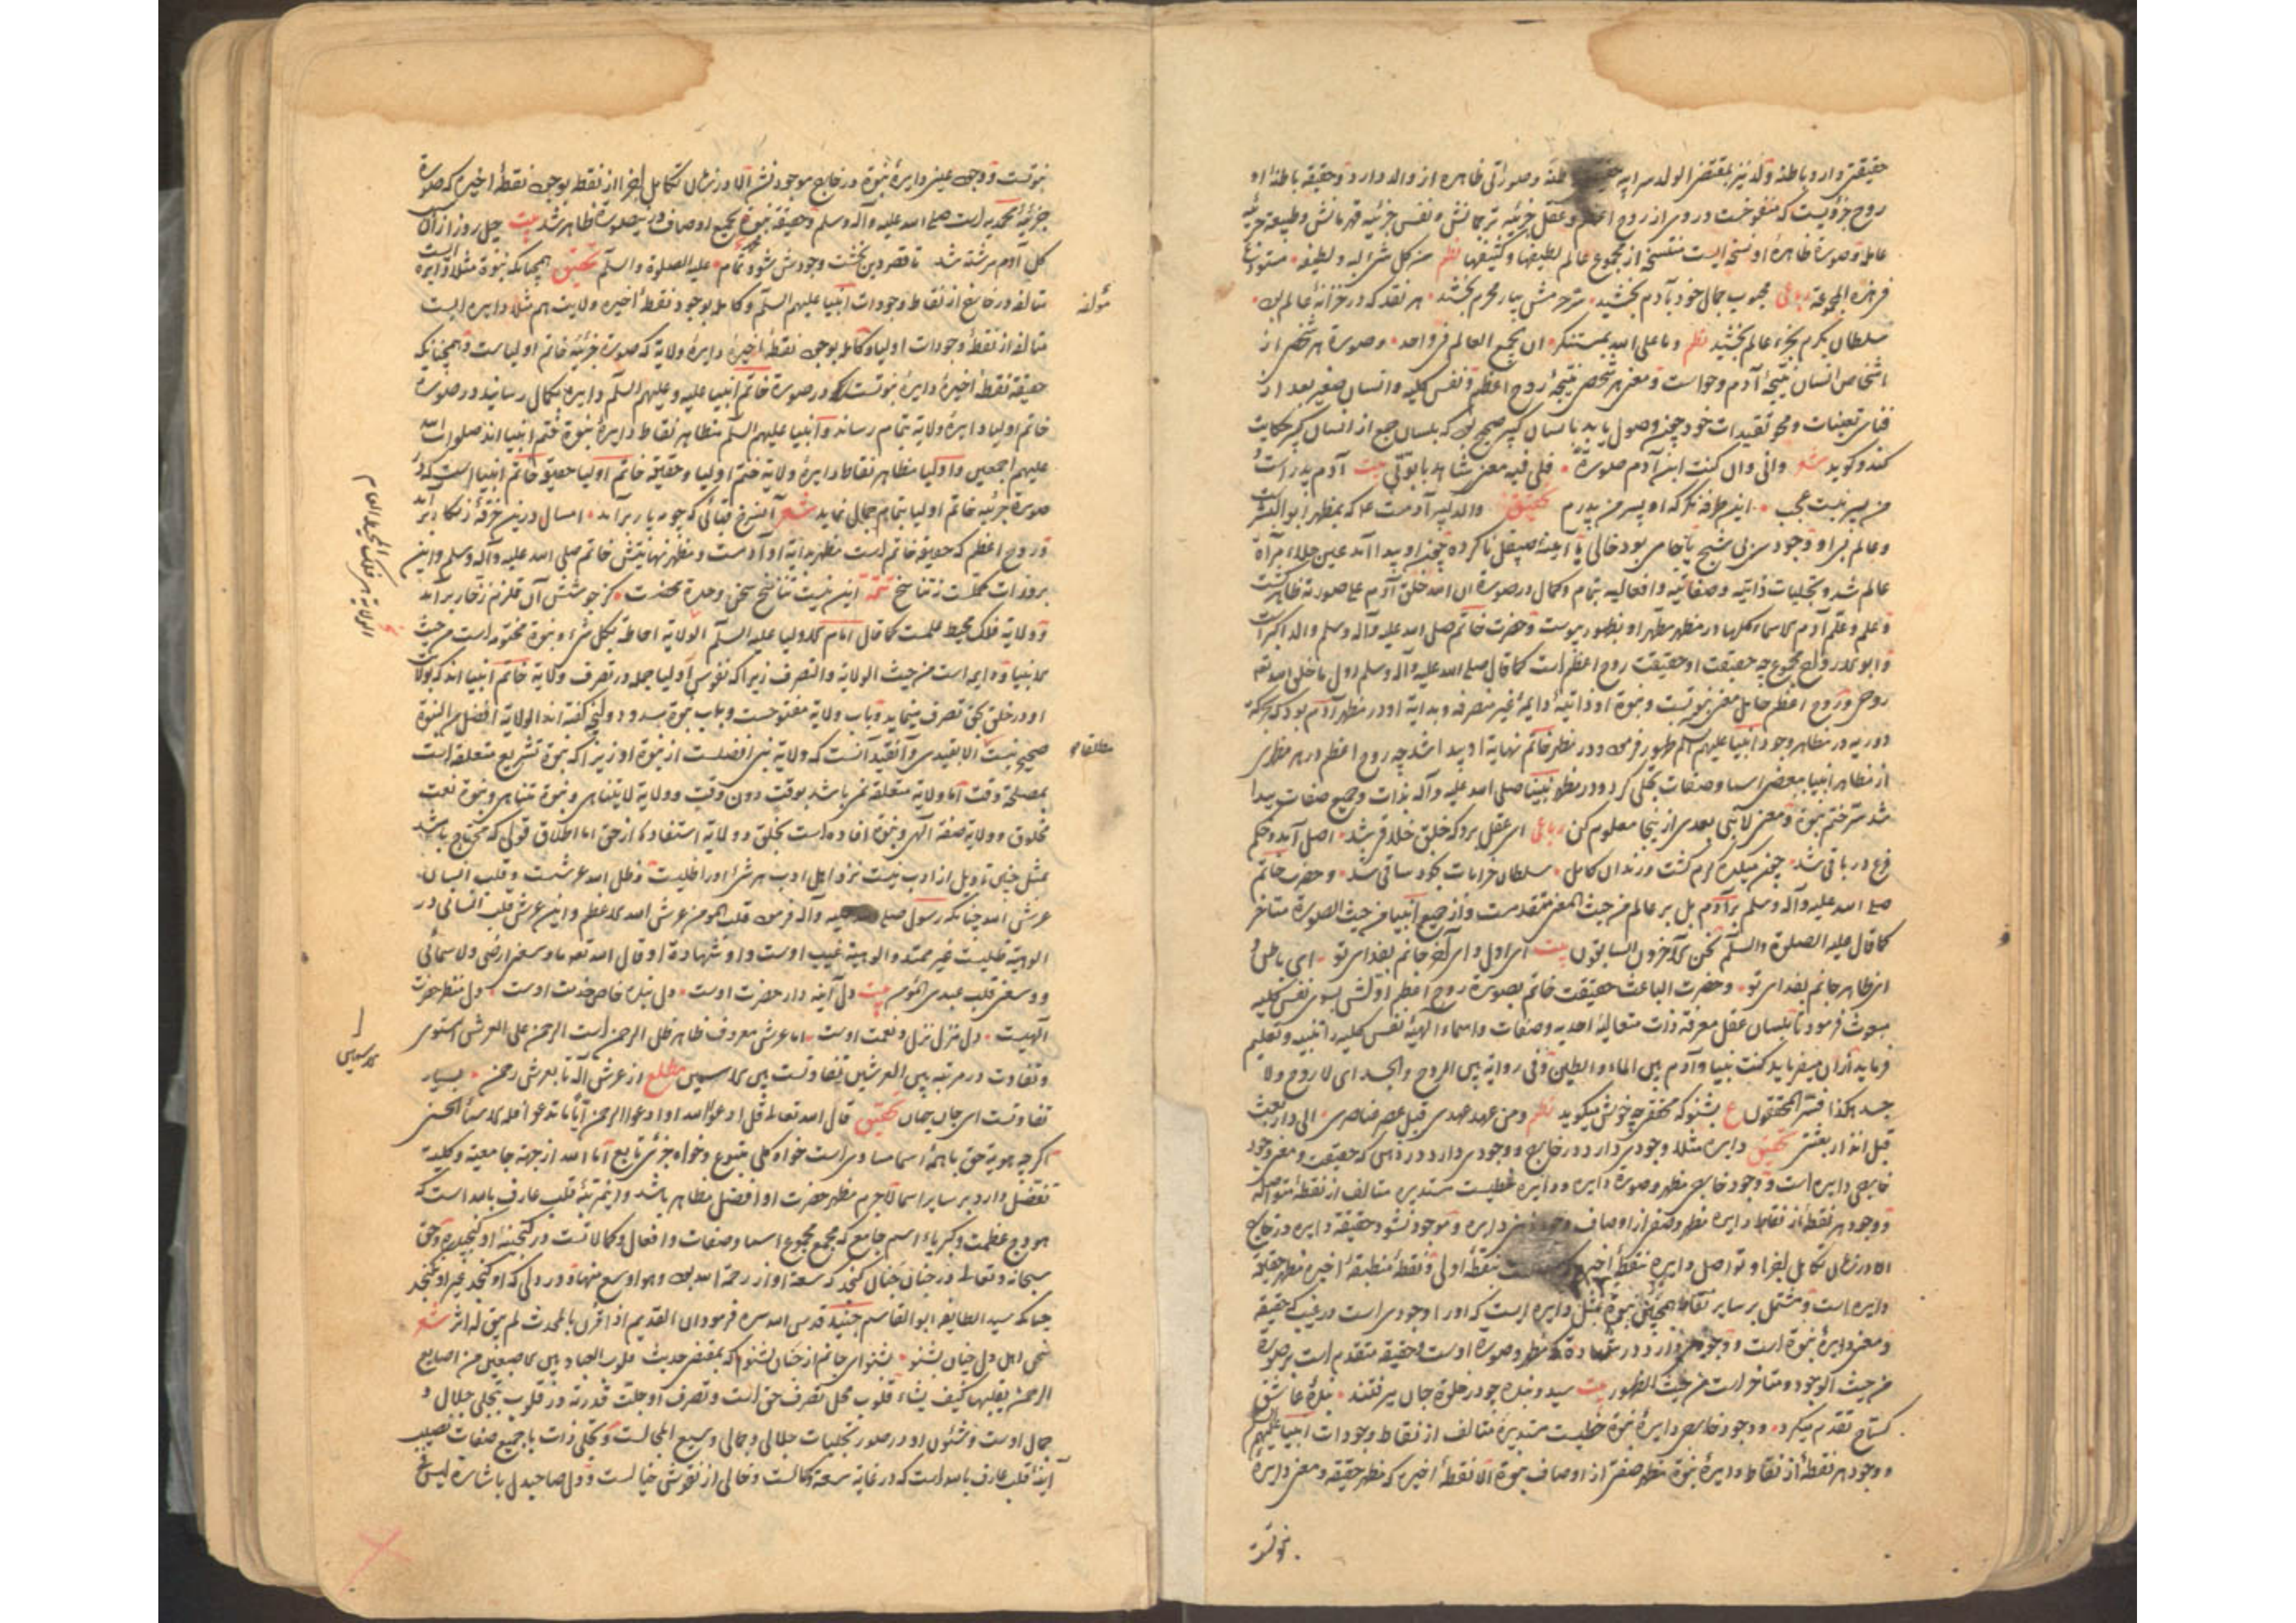 روح جزویست که منفوخست در وی از روح اعظم و عقل جزئیه ترجمانش و نفس جزئیه قهرمانش و طبیعة جزئیه
عامله و صورة ظاهرۀ او نسخه ایست منتسخ از مجموع عالم لطیفها و کثیفها نظم من کل شئ لبه و لطیفه مستودع
فی هذه المجموعة رباعی محبوب جمال خود بآدم بخشید سر حرمش بیار محرم بخشید هر نقد که در خزانۀ عالم بود
سلطان بکرم بجزء عالم بخشید نظم و ما علی الله بمستنکر ان یجمع العالم فی واحد و صورة هر شخص از
اشخاص انسان نتیجۀ آدم و حواست و معنی هر شخص نتیجۀ روح اعظم و نفس کلیه و انسان صغیر بعد از
فنای تعینات و محو تقیدات خود چون وصول یابد بانسان کبیر صحیح بود که بلسان جمع از انسان کبیر حکایت
کند و گوید شعر وانی وان کنت ابن آدم صورة فلی فیه معنی شاهد بابوتی بیت آدم پدر است و
من پسر نیست عجب این طرفه نگر که او پسر من پدرم تحقیق
و عالم بی او وجودی بود بی شبح یا جامی بود خالی یا آینۀ صیقل ناکرده چون او پیدا آمد عین جلاء مرآة
عالم شد و تجلیات ذاتیه و صفاتیه و افعالیه بتمام و کمال در صورة ان الله خلق آدم علی صورته ظاهر گشت
و علم و علم آدم الاسماء کلها در مظهر مطهر او بظهور پیوست و حضرت خاتم صلی الله علیه و آله و سلم والد اکبر است
و ابو الارواح مجموع چه حقیقت او حقیقت روح اعظم است کما قال صلی الله علیه و آله و سلم اول ما خلق الله تعالی
روحی و روح اعظم حامل معنی نبوتست و نبوة او ذاتیۀ دایمۀ غیر متصرفه و بدایة او در مظهر آدم بود که حرکة
دوریه در مظاهر وجود انبیا علیهم السلم ظهور فرمود و در مظهر خاتم نهایة او پیدا شد چه روح اعظم در هر مظهری
از مظاهر انبیا ببعضی اسما و صفات تجلی کرد و در مظهر نبینا صلی الله علیه و آله بذات و جمیع صفات پیدا
شد سر ختم نبوة و معنی لا نبی بعدی از ینجا معلوم کن رباعی ای عقل برو که خلق خلاق شد اصل آمد و حکم
فرع در باقی شد چون میکده گرم گشت و رندان کامل سلطان خرابات بخود ساقی شد و حضرت خاتم
صلی الله علیه و آله و سلم بر آدم بل بر عالم من حیث المعنی متقدمست و از جمیع انبیا من حیث الصورة متأخر
کما قال علیه الصلوة والسلم نحن الآخرون السابقون بیت ای اول و ای آخر جانم بفدای تو ای باطن و
ای ظاهر جانم بفدای تو و حضرت الباعث حقیقت خاتم بصورة روح اعظم اولش بسوی نفس کلیه
مبعوث فرمود تا بلسان عقل معرفة ذات متعالیۀ احدیه و صفات و اسماء الهیه نفس کلیه را تنبیه و تعلیم
فرماید از ان میفرماید کنت نبیا و آدم بین الماء والطین و فی روایة بین الروح والجسد ای لا روح ولا
جسد هکذا فسر المحققون ع بشنو که محقق چه خوش میگوید نظم و من عهد عهدی قبل عصر عناصری الی دار بعث
قبل انذار بعثتی تحقیق دایره مثلا وجودی دارد در خارج و وجودی دارد در ذهن که حقیقت و معنی وجود
خارجی دایره است و وجود خارجی مظهر و صورة دایره و دایره خطیست مستدیر متالف از نقطۀ متواصله
و وجود هر نقطۀ از نقاط دایره مظهر وصفی از اوصاف وجود ذهنی دایره و موجود نشود حقیقة دایره در خارج
دایره است و مشتمل بر سایر نقاط همچنین نبوة بمثل دایره ایست که او را وجودی است در غیب که حقیقة
و معنی دایرۀ نبوة است و وجودی دارد در شهادة که مظهر و صورة اوست و حقیقة متقدم است بر صورة
من حیث الوجود و متأخر است من حیث الظهور بیت سید و بنده چو در خلوة جان میرفتند بندۀ عاشق
گستاخ تقدم میکرد و وجود خارجی دایرۀ نبوة خطیست مستدیرۀ متالف از نقاط وجودات انبیا علیهم السلم
و وجود هر نقطۀ از نقاط دایرۀ نبوة مظهر صفتی از اوصاف نبوة الا نقطۀ اخیره که مظهر حقیقة و معنی دایرۀ
نبوتست
جزئیۀ محمدیه است صلی الله علیه و آله و سلم و حقیقة نبوة بجمیع اوصاف در ینصورة ظاهر شد بیت چل روز از آن
گل آدم سرشته شد تا قصر دین بخشت وجودش شود تمام علیه الصلوة والسلم تحقیق همچنانکه نبوة مثلا دایره ایست
متالفه در خارج از نقاط وجودات انبیا علیهم السلم و کامله بوجود نقطۀ اخیره ولایت هم مثلا دایره ایست
متالفه از نقطۀ وجودات اولیا و کامله بوجود نقطۀ اخیرۀ دایرۀ ولایة که صورة جزئیۀ خاتم اولیاست و همچنانکه
حقیقة نقطۀ اخیرۀ دایرۀ نبوتست که در صورة خاتم انبیا علیه و علیهم السلم دایره بکمال رسانید و در صورة
خاتم اولیا دایرۀ ولایة بتمام رساند و انبیا علیهم السلم مظاهر نقاط دایرۀ نبوة ختم انبیا اند صلوات الله
علیهم اجمعین و اولیا مظاهر نقاط دایرۀ ولایة ختم اولیا و حقیقة خاتم اولیا حقیقة خاتم انبیا است که در
صورة جزئیۀ خاتم اولیا بتمام جمال نماید شعر آن سرخ قبائی که چو مه پار برآمد امسال درین خرقۀ زنگار برآمد
و روح اعظم که حقیقة خاتم است مظهر بدایة او آدمست و مظهر نهایتش خاتم صلی الله علیه و آله و سلم و این
تتمه این نیست تناسخ سخن وحدة محضست کز جوشش آن قلزم زخار برآمد
و ولایة فلک محیط عامست کما قال امام الاولیا علیه السلم الولایة احاطة بکل شئ و نبوة مختومه است من حیث
الانبیا و دایمه است من حیث الولایة والتصرف زیرا که نفوس اولیا جمله در تصرف ولایة خاتم انبیا اند که بولایت
او در خلق بحق تصرف مینماید و باب ولایة مفتوحست و باب نبوة مسدود و آنچه گفته اند الولایة افضل من النبوة
صحیح نیست الا بقیدی و آن قید آنست که ولایة نبی افضلست از نبوة او زیرا که نبوة تشریع متعلقه است
بمصلحة وقت اما ولایة متعلقه نمی باشد بوقت دون وقت و ولایة لایتناهی و نبوة متناهی و نبوة نعت
مخلوق و ولایة صفة الهی و نبوة افاده است بخلق و ولایة استفاده از حق اما اطلاق قولی که محتاج باشد
بمثل چنین تاویل از ادب نیست نزد اهل ادب هر شئ را ظلیست و ظل الله عرشست و قلب انسان
عرش الله چنانکه رسول صلی الله علیه و آله فرمود قلب المؤمن عرش الله الاعظم و این عرش قلب انسانی در
الوهیة ظلیست غیر ممتد و الوهیة غیب اوست و او شهادة او قال الله تعالی ما وسعنی ارضی ولا سمائی
و وسعنی قلب عبدی المؤمن بیت دل آینه دار حضرت اوست دل بنده خاص خدمت اوست دل منظر حضرت
الهیت دل منزل نزل و نعمت اوست اما عرش معروف ظاهر ظل الرحمن است الرحمن علی العرش استوی
و تفاوت در مرتبه بین العرشین تفاوتست بین الاسمین مطلع از عرش اله تا بعرش رحمن بسیار
تفاوتست ای جان جهان تحقیق قال الله تعالی قل ادعوا الله او ادعوا الرحمن ایا ما تدعو فله الاسماء الحسنی
اگرچه هویة حق باهمۀ اسما مساوی است خواه کلی متبوع و خواه جزئی تابع اما الله از جهة جامعیة و کلیة
تفضل دارد بر سایر اسما لاجرم مظهر حضرت او افضل مظاهر باشد و این مرتبۀ قلب عارف بالله است که
هودج عظمت و کبریاء اسم جامع که مجمع مجموع اسما و صفات و افعال و کمالاتست در گنجینۀ او گنجیده و حق
سبحانه و تعالی در جنان جنان گنجد که سعة او از رحمة الله بود و هو اوسع منها و در دلی که او گنجد غیر او نگنجد
چنانکه سید الطایفه ابو القاسم جنید قدس الله سره فرمود ان القدیم اذا قرن بالمحدث لم یبق له اثر شعر
سخن اهل دل چنان بشنو بشنو ای جانم از جنان بشنو که بمقتضی حدیث قلوب العباد بین الاصبعین من اصابع
الرحمن یقلبها کیف یشاء قلوب محل تصرف حق است و تصرف او جلت قدرته در قلوب بتجلی جلال و
جمال اوست و شئون او در صور تجلیات جلالی و جمالی وسیع المجالست و تجلی ذات با جمیع صفات نصیب
آینۀ قلب عارف بالله است که در غایة سعة و کمالست و خالی از نقوش خیالست و دل صاحبدل باشارة لیس فی
الولایة هی فلک المحیط العام